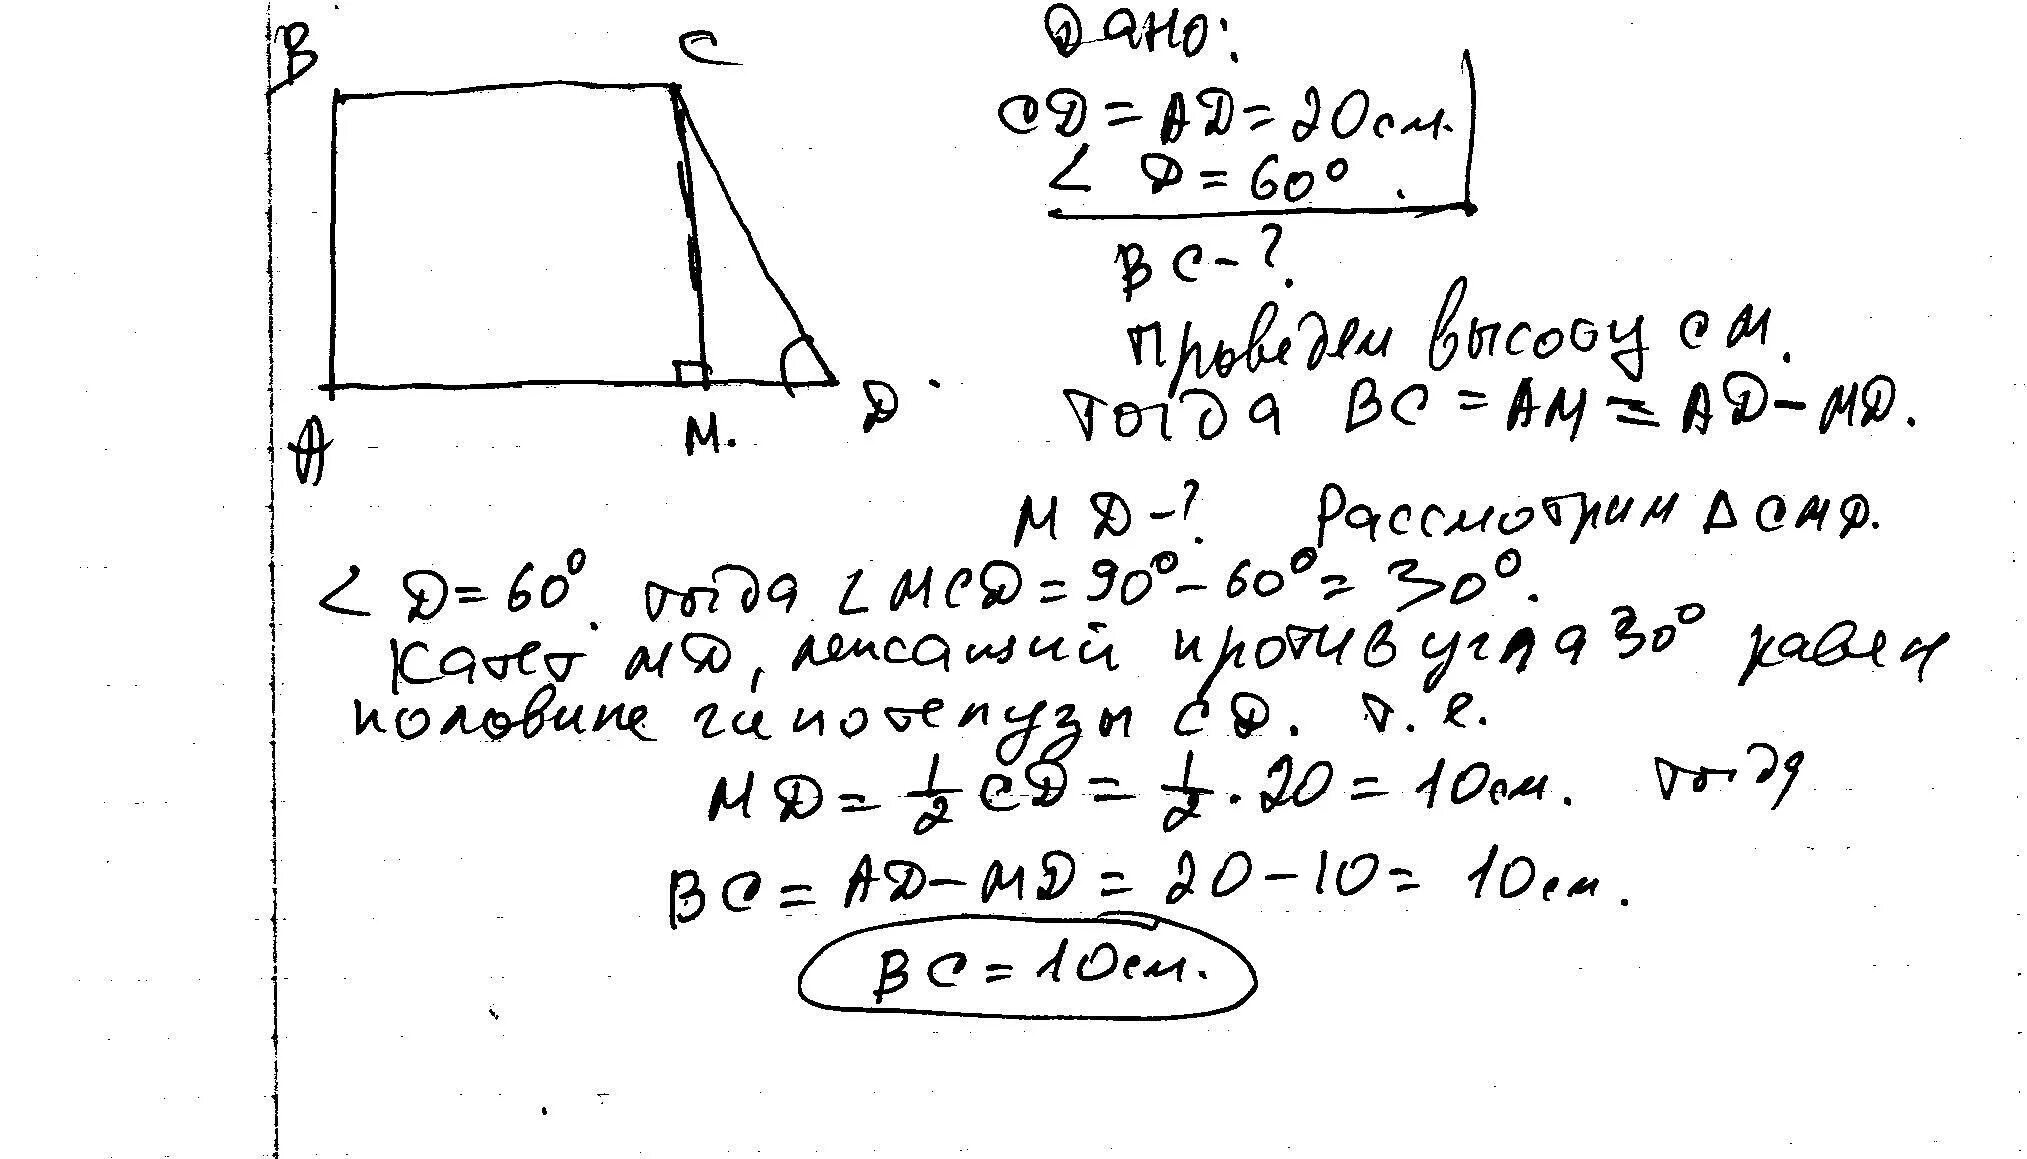 B
C
A
M.
D
Дано:
CD = AD = 20 см.
< D = 60°.
BC - ?
Проведем высоту CM.
тогда BC = AM = AD - MD.
MD - ? Рассмотрим Δ CMD.
< D = 60°. тогда ∠ MCD = 90° - 60° = 30°.
Катет MD, лежащий против угла 30° равен
половине гипотенузы CD. т. е.
MD = 1/2 CD = 1/2 · 20 = 10 см. тогда
BC = AD - MD = 20 - 10 = 10 см.
BC = 10 см.